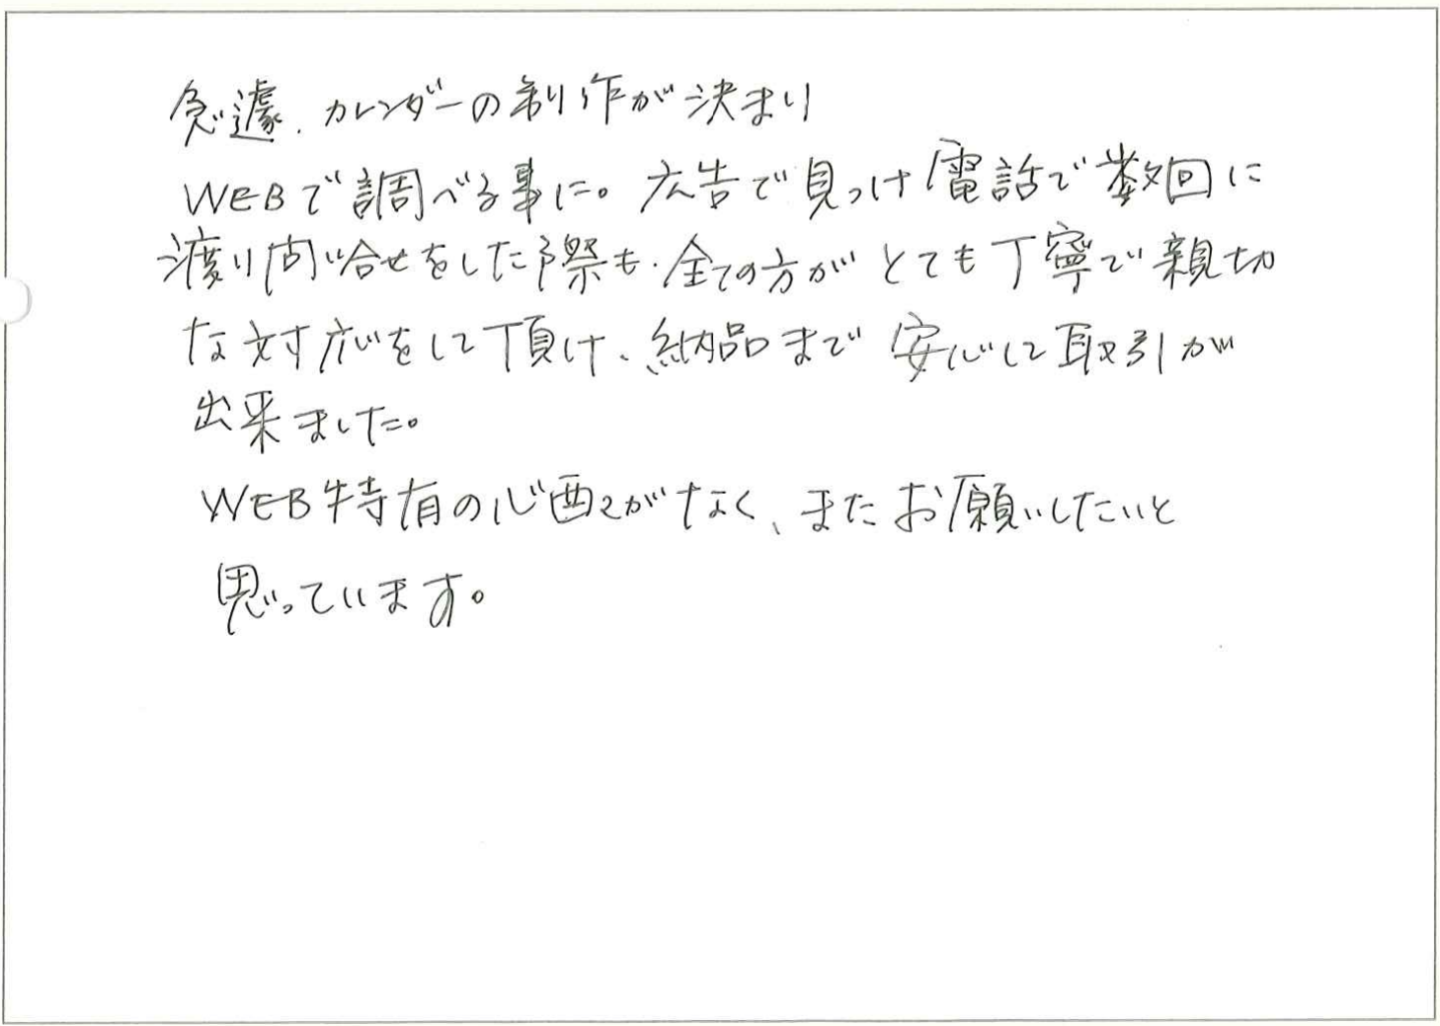 急遽、カレンダーの制作が決まり
WEBで調べる事に。広告で見つけ電話で数回に
渡り問い合せをした際も、全ての方がとても丁寧で親切
な対応をして頂け、納品まで安心して取引が
出来ました。
WEB特有の心配がなく、またお願いしたいと
思っています。